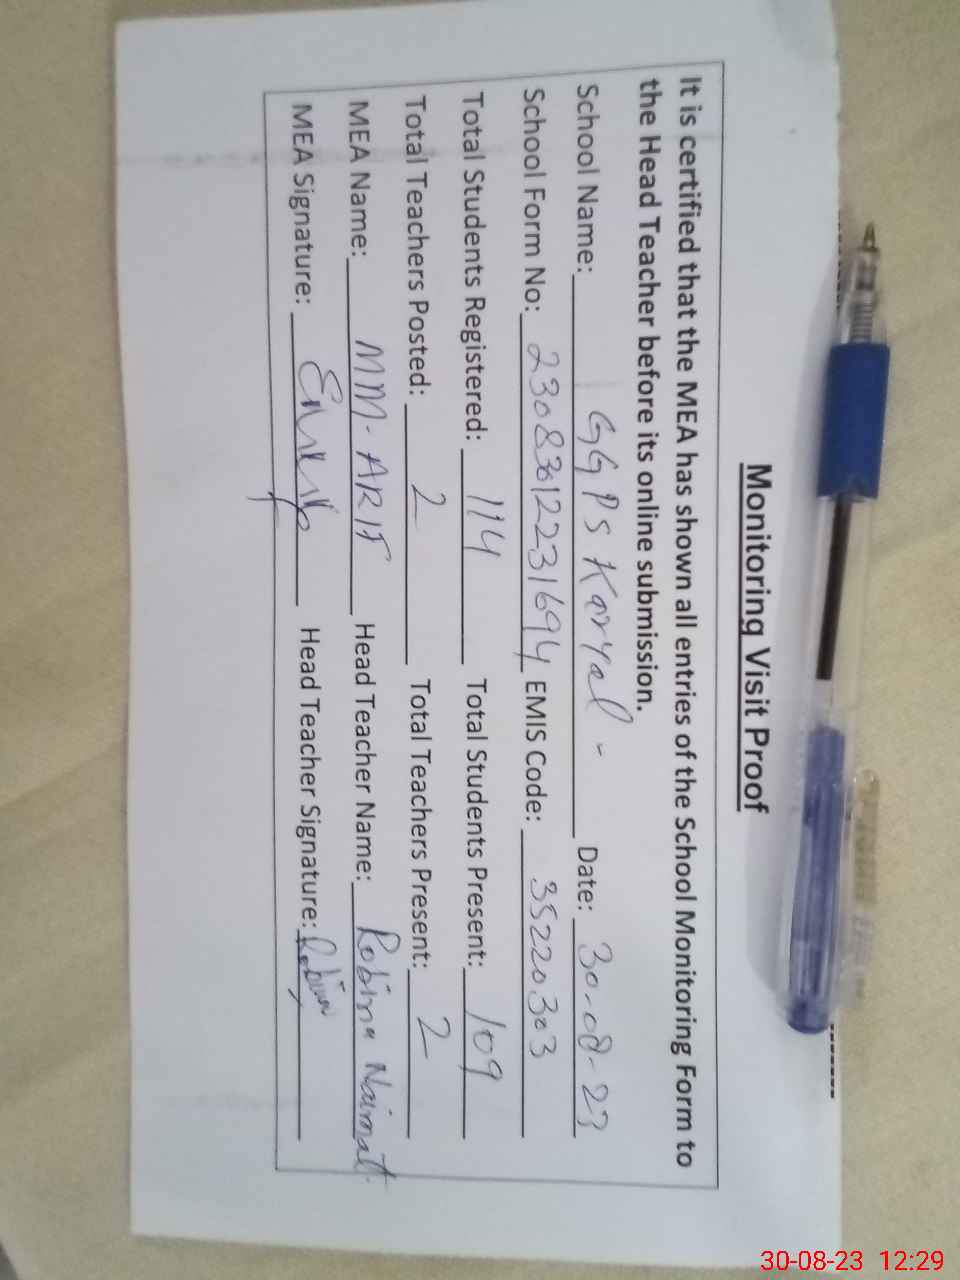 Monitoring Visit Proof
It is certified that the MEA has shown all entries of the School Monitoring Form to
the Head Teacher before its online submission.
School Name: GGPS Karyal - Date: 30-08-23
School Form No: 23083012231694 EMIS Code: 35220303
Total Students Registered: 114 Total Students Present: 109
Total Teachers Posted: 2 Total Teachers Present: 2
MEA Name: MM-ARIF Head Teacher Name: Robina Naimat
MEA Signature: Head Teacher Signature: Robina
30-08-23 12:29